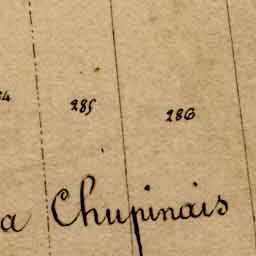 285
286
a Chupinais